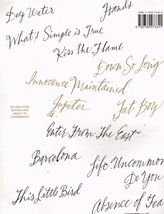 Deep Water
Hands
What's Simple is True
Kiss the Flame
Down So Long
Innocence Maintained
Jupiter
Fat Boy
Enter From The East
Barcelona
Life Uncommon
Do You
This Little Bird
Absence of Fea